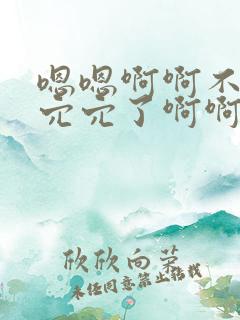 嗯嗯啊啊不
穴穴了啊啊
欣欣向荣
未经同意禁止转载